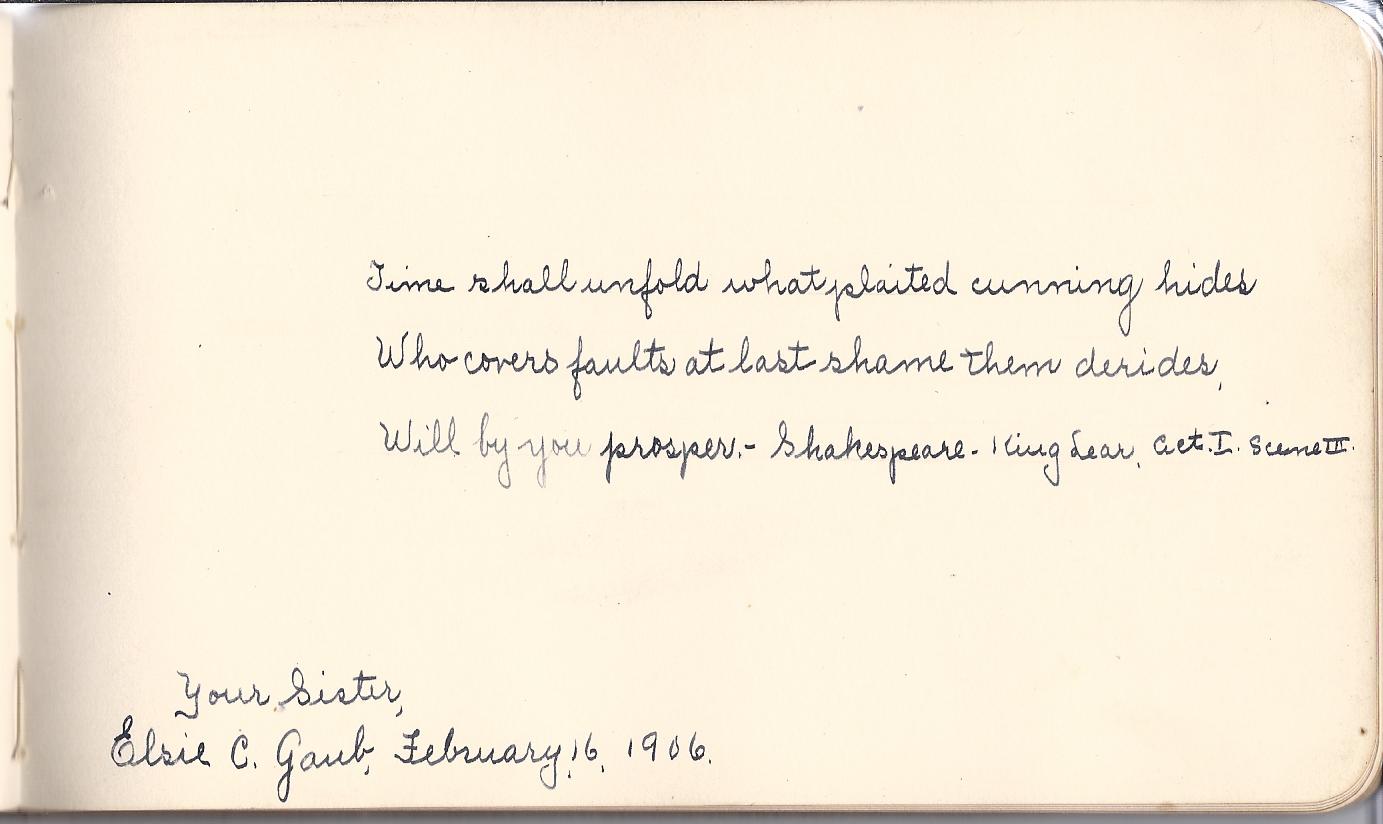 Time shall unfold what plaited cunning hides
Who covers faults at last shame them derides,
Will by you prosper.- Shakespeare - King Lear, Act. I. Scene III.
Your Sister,
Elsie C. Gaub, February, 16, 1906.